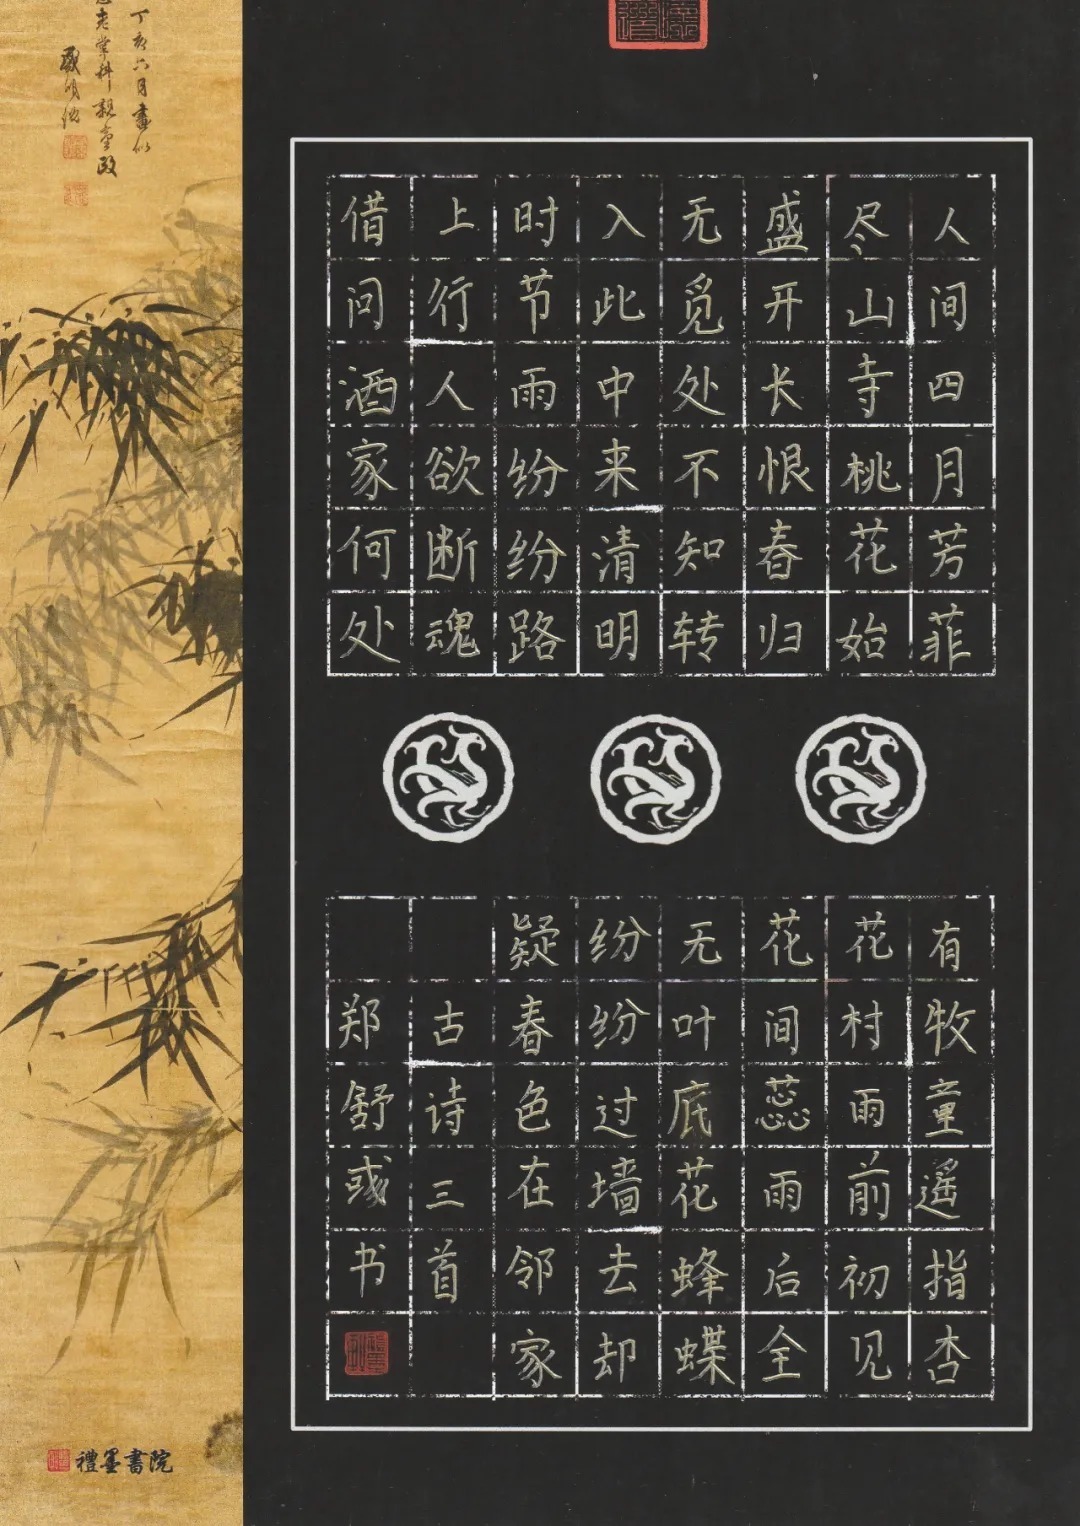 人间四月芳菲
尽山寺桃花始
盛开长恨春归
无觅处不知转
入此中来清明
时节雨纷纷路
上行人欲断魂
借问酒家何处
有牧童遥指杏
花村雨前初见
花间蕊雨后全
无叶底花蜂蝶
纷纷过墙去却
疑春色在邻家
古诗三首
郑舒彧书
丁亥六月畫似
禮墨書院